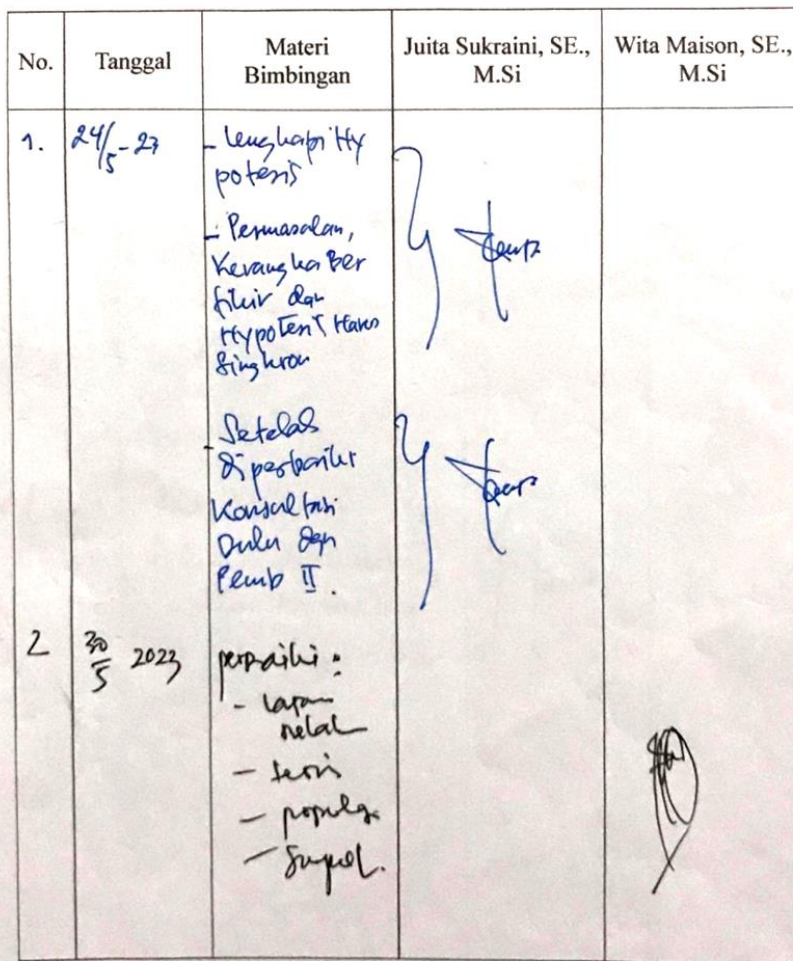 No.
Tanggal
Materi
Bimbingan
Juita Sukraini, SE.,
M.Si
Wita Maison, SE.,
M.Si
1.
24/5-23
- Lengkapi Hy
potesis
- Permasalan,
Kerangka Ber
fikir dan
Hypotesis Harus
Singkron
- Setelah
diperbaiki
Konsultasi
Dulu dgn
Pemb II.
2
30/5 2023
perbaiki :
-
- teoris
- populasi
- Sampel.